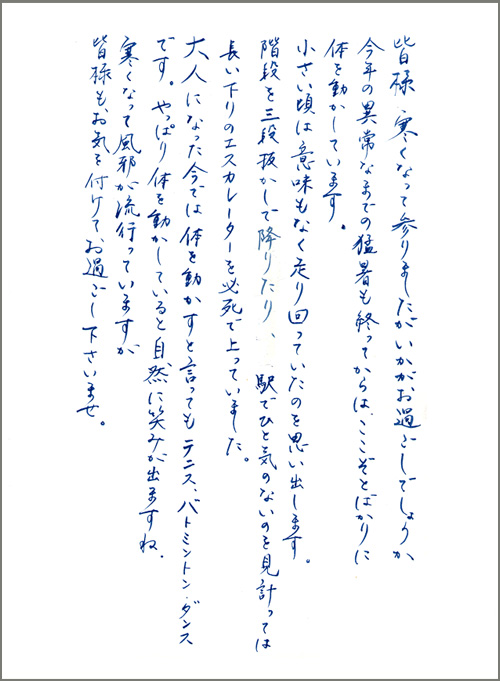 皆様、寒くなって参りましたがいかがお過ごしでしょうか
今年の異常なまでの猛暑も終ってからは、ここぞとばかりに
体を動かしています。
小さい頃は意味もなく走り回っていたのを思い出します。
階段を三段抜かしで降りたり、駅でひと気のないのを見計っては
長い下りのエスカレーターを必死で上っていました。
大人になった今では体を動かすと言ってもテニス、バトミントン・ダンス
です。やっぱり体を動かしていると自然に笑みが出ますね.
寒くなって風邪が流行っていますが
皆様も、お気を付けてお過ごし下さいませ。